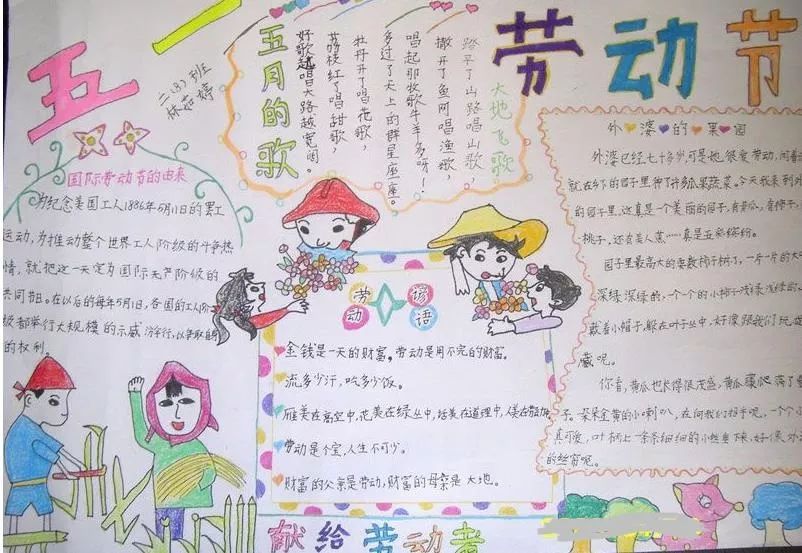 五一
劳动节
二(8)班
林茹婷
五月的歌
大地飞歌
踏平了山路唱山歌，
撒开了鱼网唱渔歌，
唱起那牧歌牛羊多呀！
多过了天上的群星座座。
牡丹开了唱花歌，
荔枝红了唱甜歌，
好歌越唱大路越宽阔。
国际劳动节的由来
为纪念美国工人1886年5月1日的罢工
运动，为推动整个世界工人阶级的斗争热
情，就把这一天定为国际无产阶级的
共同节日。在以后的每年5月1日，各国的工人阶
级都举行大规模的示威游行，以争取自
的权利。
劳动谚语
金钱是一天的财富，劳动是用不完的财富。
流多少汗，吃多少饭。
雁美在高空中，花美在绿丛中，话美在道理中，人美在
劳动是个宝，人生不可少。
财富的父亲是劳动，财富的母亲是大地。
外婆的果园
外婆已经七十多岁，可是她很爱劳动，
就在乡下的园子里种了许多瓜果蔬菜。今天我来到
的园子里，这真是一个美丽的园子，有黄瓜，有柿子，
桃子，还有美人蕉……真是五彩缤纷。
园子里最高大的要数柿子树了，一片一片的大
深绿深绿的，一个个的小柿子浅绿浅绿的，
戴着小帽子，躲在叶子丛中，好像跟我们玩
藏呢。
你看，黄瓜也长得很茂盛，黄瓜藤爬满了
子。朵朵金黄的小喇叭，在向我们招手呢，一个个
真可爱，叶柄上一条条细细的小丝垂下来，好像
的丝窗呢。
献给劳动者